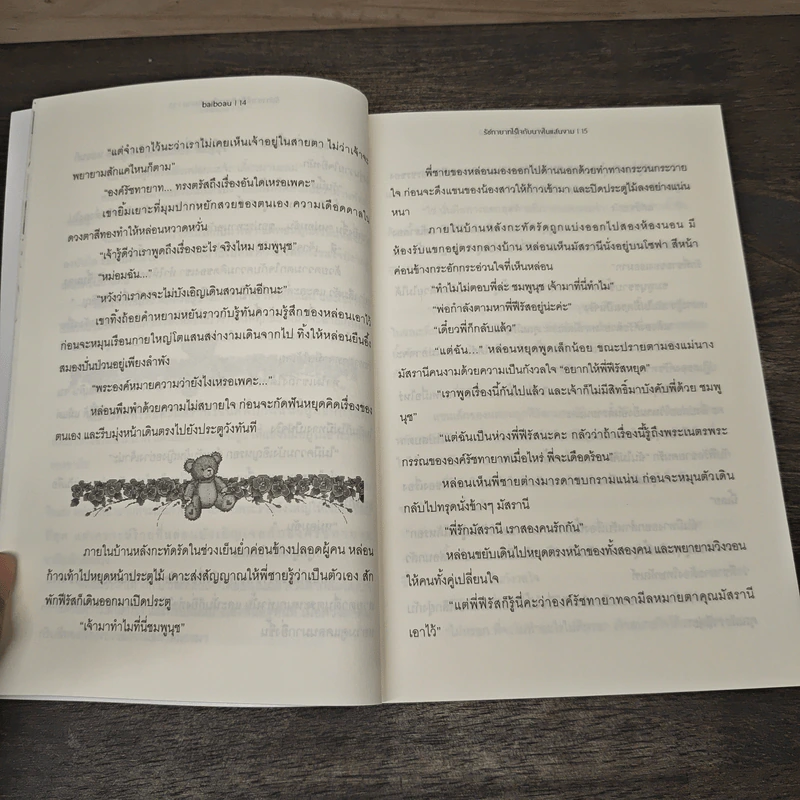 baiboau | 14
"แต่จำเอาไว้นะว่าเราไม่เคยเห็นเจ้าอยู่ในสายตา ไม่ว่าเจ้าจะ
พยายามสักแค่ไหนก็ตาม"
"องค์รัชทายาท... ทรงตรัสถึงเรื่องอันใดเหรอเพคะ"
เขายิ้มเยาะที่มุมปากหยักสวยของตนเอง ความเดือดดาลใน
ดวงตาสีทองทำให้หล่อนหวาดหวั่น
"เจ้ารู้ดีว่าเราพูดถึงเรื่องอะไร จริงไหม ชมพูนุช"
"หม่อมฉัน..."
"หวังว่าเราคงจะไม่บังเอิญเดินสวนกันอีกนะ"
เขาทิ้งถ้อยคำหยามหยันราวกับรู้ทันความรู้สึกของหล่อนเอาไว้
ก่อนจะหมุนเรือนกายใหญ่โตแสนสง่างามเดินจากไป ทิ้งให้หล่อนยืนอึ้ง
สมองปั่นป่วนอยู่เพียงลำพัง
"พระองค์หมายความว่ายังไงเหรอเพคะ..."
หล่อนพึมพำด้วยความไม่สบายใจ ก่อนจะกัดฟันหยุดคิดเรื่องของ
ตนเอง และรีบมุ่งหน้าเดินตรงไปยังประตูวังทันที
ภายในบ้านหลังกะทัดรัดในช่วงเย็นย่ำค่อนข้างปลอดผู้คน หล่อน
ก้าวเท้าไปหยุดหน้าประตูไม้ เคาะส่งสัญญาณให้พี่ชายรู้ว่าเป็นตัวเอง สัก
พักฟีรัสก็เดินออกมาเปิดประตู
"เจ้ามาทำไมที่นี่ชมพูนุช"
รัชทายาทไร้ใจกับนางในแสนงาม | 15
พี่ชายของหล่อนมองออกไปด้านนอกด้วยท่าทางกระวนกระวาย
ใจ ก่อนจะดึงแขนของน้องสาวให้ก้าวเข้ามา และปิดประตูไม้ลงอย่างแน่น
หนา
ภายในบ้านหลังกะทัดรัดถูกแบ่งออกไปสองห้องนอน มี
ห้องรับแขกอยู่ตรงกลางบ้าน หล่อนเห็นมัสรานีนั่งอยู่บนโซฟา สีหน้า
ค่อนข้างกระอักกระอ่วนใจที่เห็นหล่อน
"ทำไมไม่ตอบพี่ล่ะ ชมพูนุช เจ้ามาที่นี่ทำไม"
"พ่อกำลังตามหาพี่ฟีรัสอยู่น่ะค่ะ"
"เดี๋ยวพี่ก็กลับแล้ว"
"แต่ฉัน..." หล่อนหยุดพูดเล็กน้อย ขณะปรายตามองแม่นาง
มัสรานีคนงามด้วยความเป็นกังวลใจ "อยากให้พี่ฟีรัสหยุด"
"เราพูดเรื่องนี้กันไปแล้ว และเจ้าก็ไม่มีสิทธิ์มาบังคับพี่ด้วย ชมพู
นุช"
"แต่ฉันเป็นห่วงพี่ฟีรัสนะคะ กลัวว่าถ้าเรื่องนี้รู้ถึงพระเนตรพระ
กรรณขององค์รัชทายาทเมื่อไหร่ พี่จะเดือดร้อน"
หล่อนเห็นพี่ชายต่างมารดาขบกรามแน่น ก่อนจะหมุนตัวเดิน
กลับไปทรุดนั่งข้างๆ มัสรานี
"พี่รักมัสรานี เราสองคนรักกัน"
หล่อนขยับเดินไปหยุดตรงหน้าของทั้งสองคน และพยายามวิงวอน
ให้คนทั้งคู่เปลี่ยนใจ
"แต่พี่ฟีรัสก็รู้นี่คะว่าองค์รัชทายาทจามีลหมายตาคุณมัสรานี
เอาไว้"